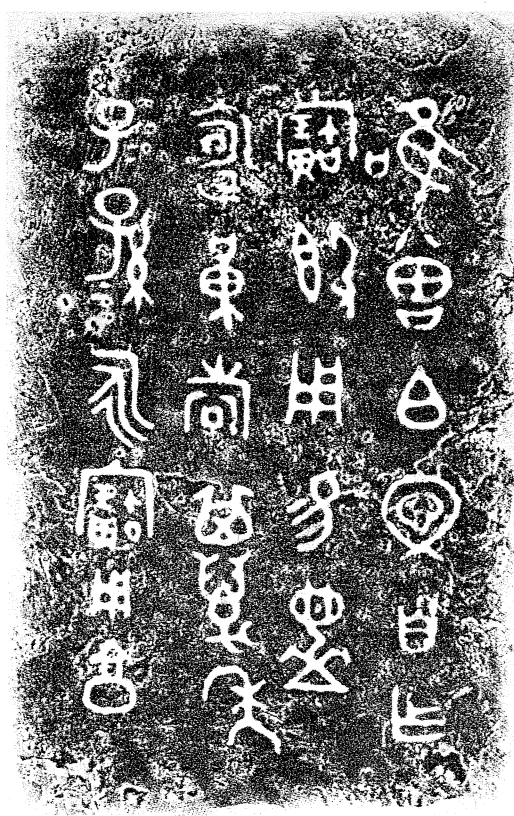 唯曾白文自乍
寶𣪘用易眉
壽黃耇其萬年
子=孫=永寶用享